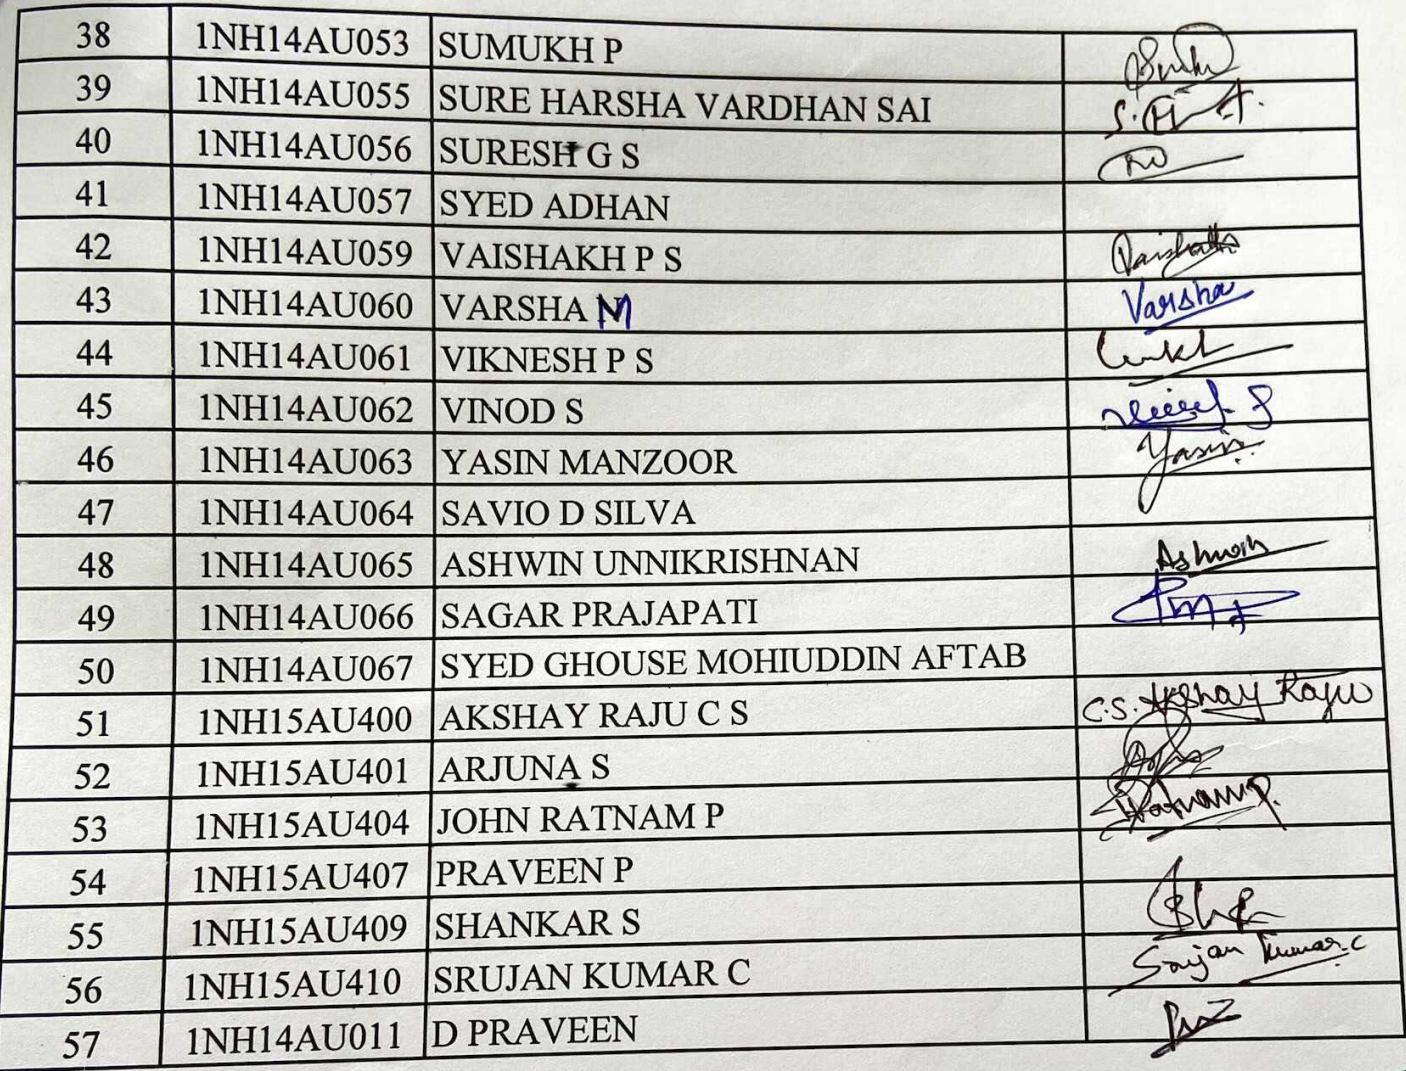 38 1NH14AU053 SUMUKH P
39 1NH14AU055 SURE HARSHA VARDHAN SAI
40 1NH14AU056 SURESH G S
41 1NH14AU057 SYED ADHAN
42 1NH14AU059 VAISHAKH P S Vaishakh
43 1NH14AU060 VARSHA M Varsha
44 1NH14AU061 VIKNESH P S
45 1NH14AU062 VINOD S
46 1NH14AU063 YASIN MANZOOR Yasin
47 1NH14AU064 SAVIO D SILVA
48 1NH14AU065 ASHWIN UNNIKRISHNAN Ashwin
49 1NH14AU066 SAGAR PRAJAPATI
50 1NH14AU067 SYED GHOUSE MOHIUDDIN AFTAB
51 1NH15AU400 AKSHAY RAJU C S C.S. Akshay Raju
52 1NH15AU401 ARJUNA S
53 1NH15AU404 JOHN RATNAM P Ratnam P.
54 1NH15AU407 PRAVEEN P
55 1NH15AU409 SHANKAR S
56 1NH15AU410 SRUJAN KUMAR C Srujan Kumar. C
57 1NH14AU011 D PRAVEEN